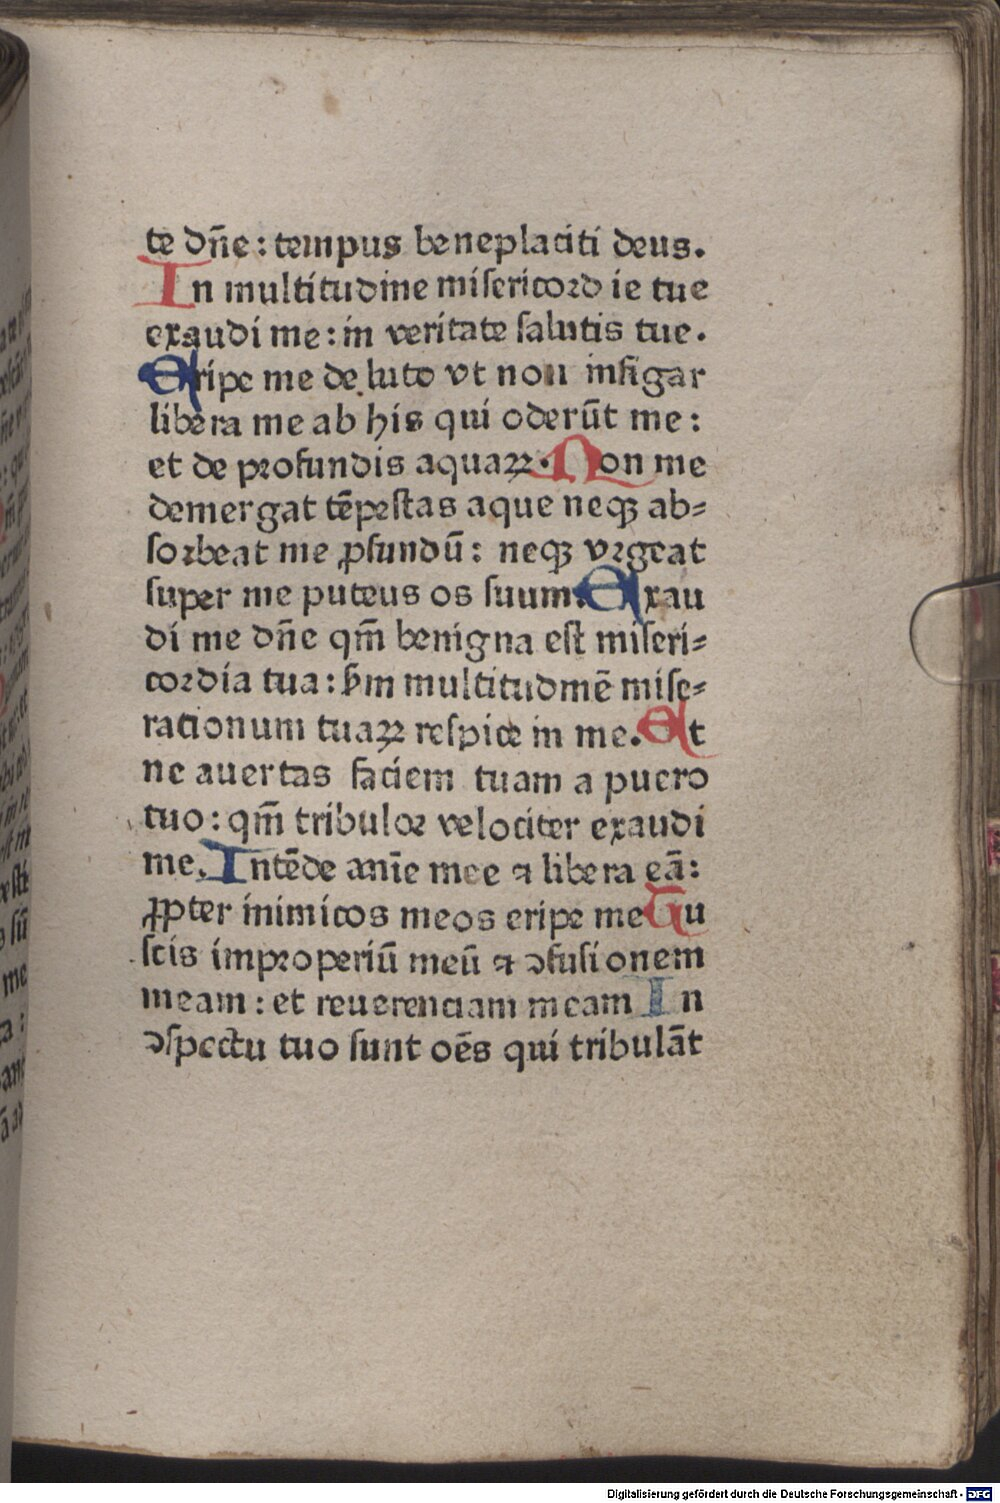 te dn̄e : tempus beneplaciti deus.
In multitudine misericordie tue
exaudi me : in veritate salutis tue.
Eripe me de luto vt non infigar
libera me ab his qui oderūt me :
et de profundis aquaꝝ. Non me
demergat tēpestas aque neqꝫ ab⸗
sorbeat me ꝓfundū : neqꝫ vrgeat
super me puteus os suum. Exau
di me dn̄e qm̄ benigna est miseri⸗
cordia tua : scd̄m multitudinē mise⸗
rationum tuaꝝ respice in me. Et
ne auertas faciem tuam a puero
tuo : qm̄ tribulor velociter exaudi
me. Intēde anīe mee ⁊ libera eā :
ꝓpter inimicos meos eripe me Tu
scis improperiū meū ⁊ ꝯfusionem
meam : et reuerenciam meam In
ꝯspectu tuo sunt oēs qui tribulāt
Digitalisierung gefördert durch die Deutsche Forschungsgemeinschaft - DFG